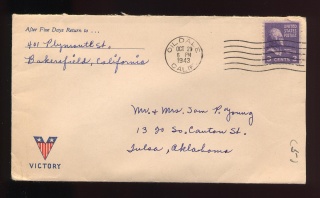 After Five Days Return to
401 Plymouth St.
Bakersfield, California
OILDALE
OCT 29
6 PM
1943
CALIF.
UNITED STATES POSTAGE
3 CENTS
Mr. & Mrs. Sam P. Young
13 So. Canton St.
Tulsa, Oklahoma
VICTORY